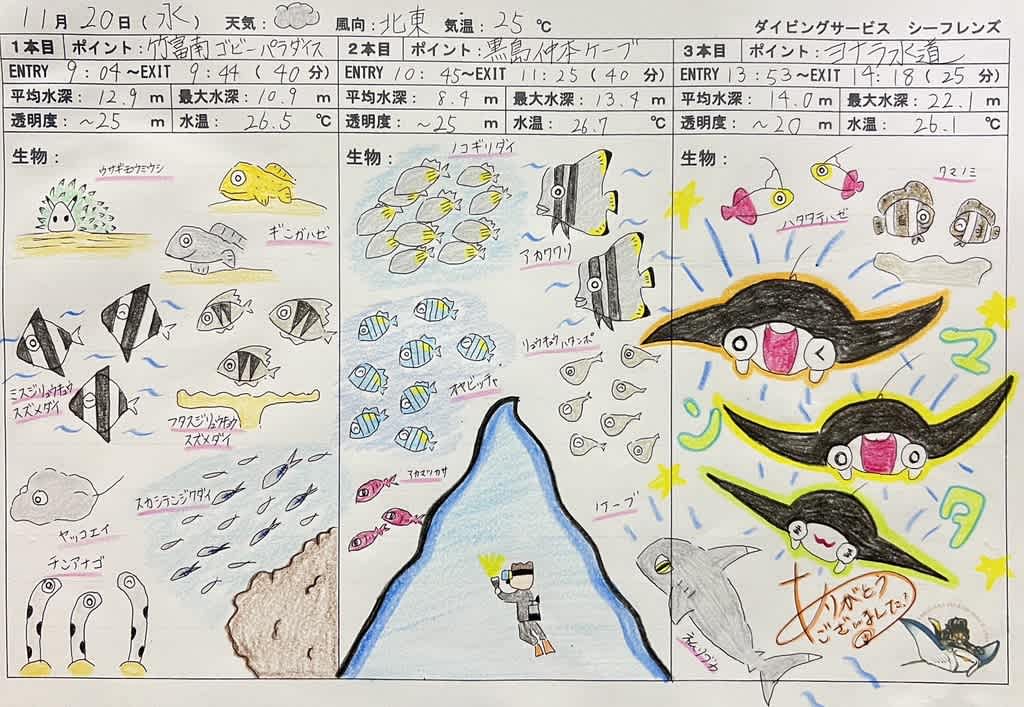 11月20日(水) 天気: 風向:北東 気温:25℃ ダイビングサービス シーフレンズ
1本目 ポイント:竹富南ゴビーパラダイス
ENTRY 9:04~EXIT 9:44(40分)
平均水深:12.9m 最大水深:10.9m
透明度:~25m 水温:26.5℃
生物:
ウサギモウミウシ
ギンガハゼ
ミスジリュウキュウ
スズメダイ
フタスジリュウキュウ
スズメダイ
スカシテンジクダイ
ヤッコエイ
チンアナゴ
2本目 ポイント:黒島仲本ケーブ
ENTRY 10:45~EXIT 11:25(40分)
平均水深:8.4m 最大水深:13.4m
透明度:~25m 水温:26.7℃
生物:
ノコギリダイ
アカククリ
リュウキュウハタンポ
オヤビッチャ
アカマツカサ
ケーブ
3本目 ポイント:ヨナラ水道
ENTRY 13:53~EXIT 14:18(25分)
平均水深:14.0m 最大水深:22.1m
透明度:~20m 水温:26.1℃
生物:
ハタタテハゼ
クマノミ
マンタ
ネムリブカ
ありがとう
ございました!